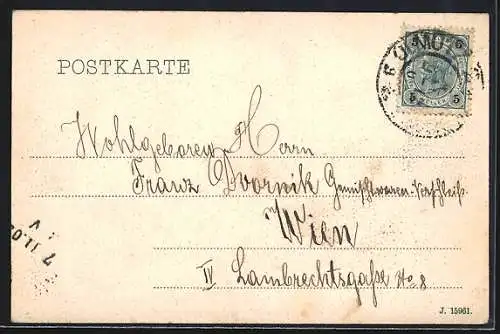 POSTKARTE
5 5
5 5
OLMÜ
Wohlgeboren Herrn
Franz Dvornik Gemischtwaren-Verschleiß
Wien
IV Lambrechtsgaße No 8
J. 15961.